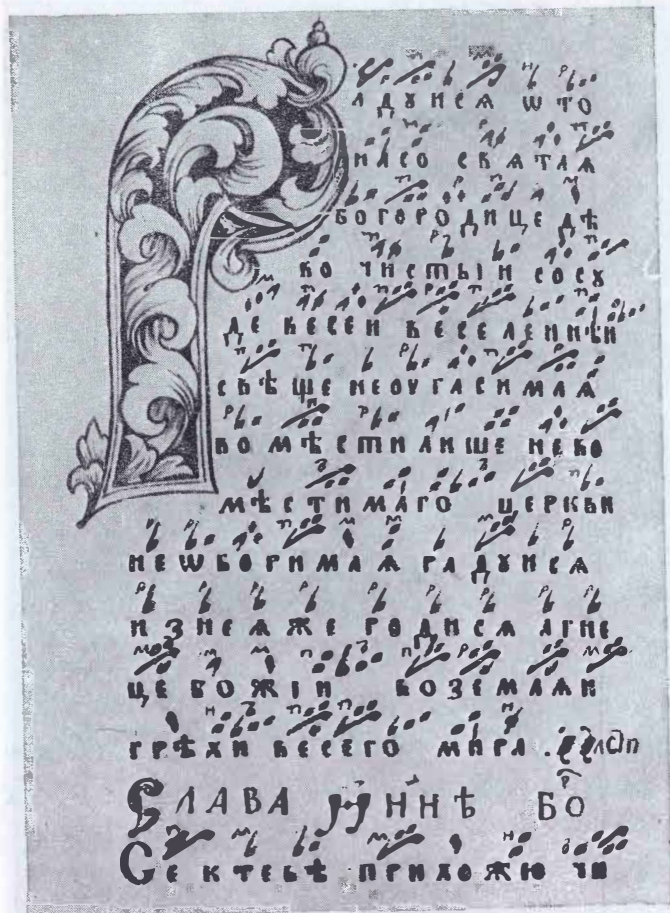 РАДꙊИСѦ ѠТО
НАСО СВѦТАѦ
БОГОРОДИЦЕ ДѢ
ВО ЧИСТЫИ СОСꙊ
ДЕ ВЕСЕИ ВЕСЕЛЕННѢИ
СВѢЩЕ НЕОУГАСИМАѦ
ВО МѢСТИЛИЩЕ НЕВО
МѢСТИМАГО ЦЕРКВИ
НЕѠБОРИМАѦ РАДꙊИСѦ
ИЗНЕѦЖЕ РОДИСѦ АГНЕ
ЦЕ БОЖІИ ВОЗЕМЛѦИ
ГРѢХИ ВЕСЕГО МИРА .
СЛАВА И НН҃Ѣ БО
СЕ К ТЕБѢ ПРИХОЖЮ ЧИ